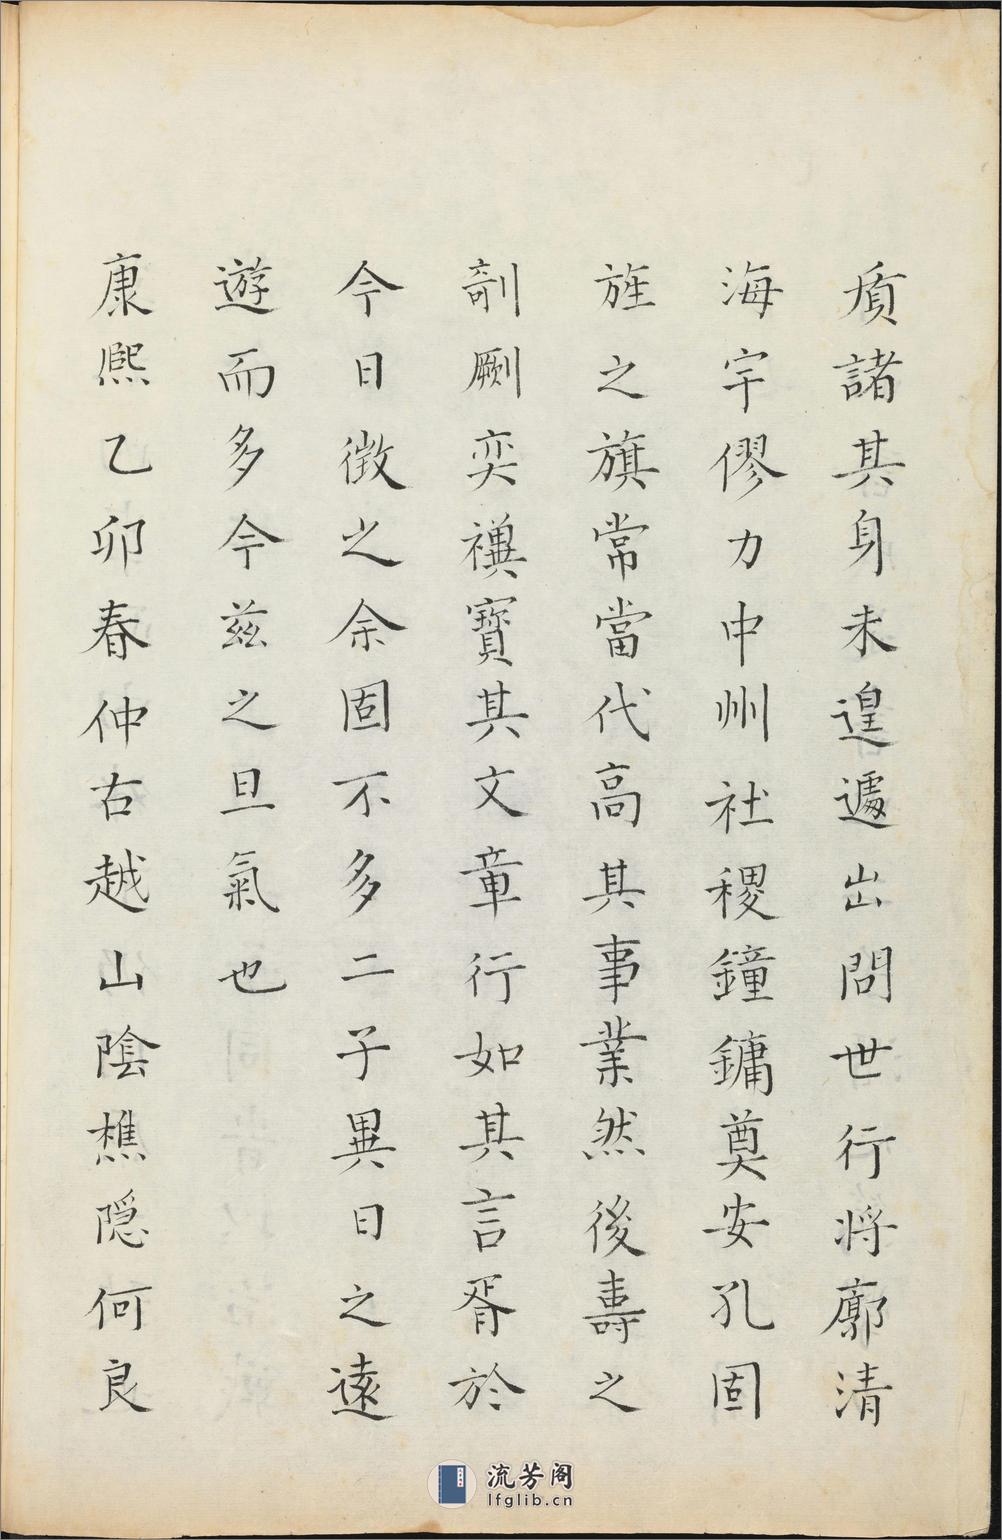 質諸其身未遑遽出問世行将廓清
海宇僇力中州社稷鐘鏞奠安孔固
旌之旗常當代高其事業然後壽之
剞劂奕禩寶其文章行如其言胥於
今日徴之余固不多二子異日之遠
遊而多今兹之旦氣也
康熙乙卯春仲古越山陰樵隠何良
流芳阁
lfglib.cn